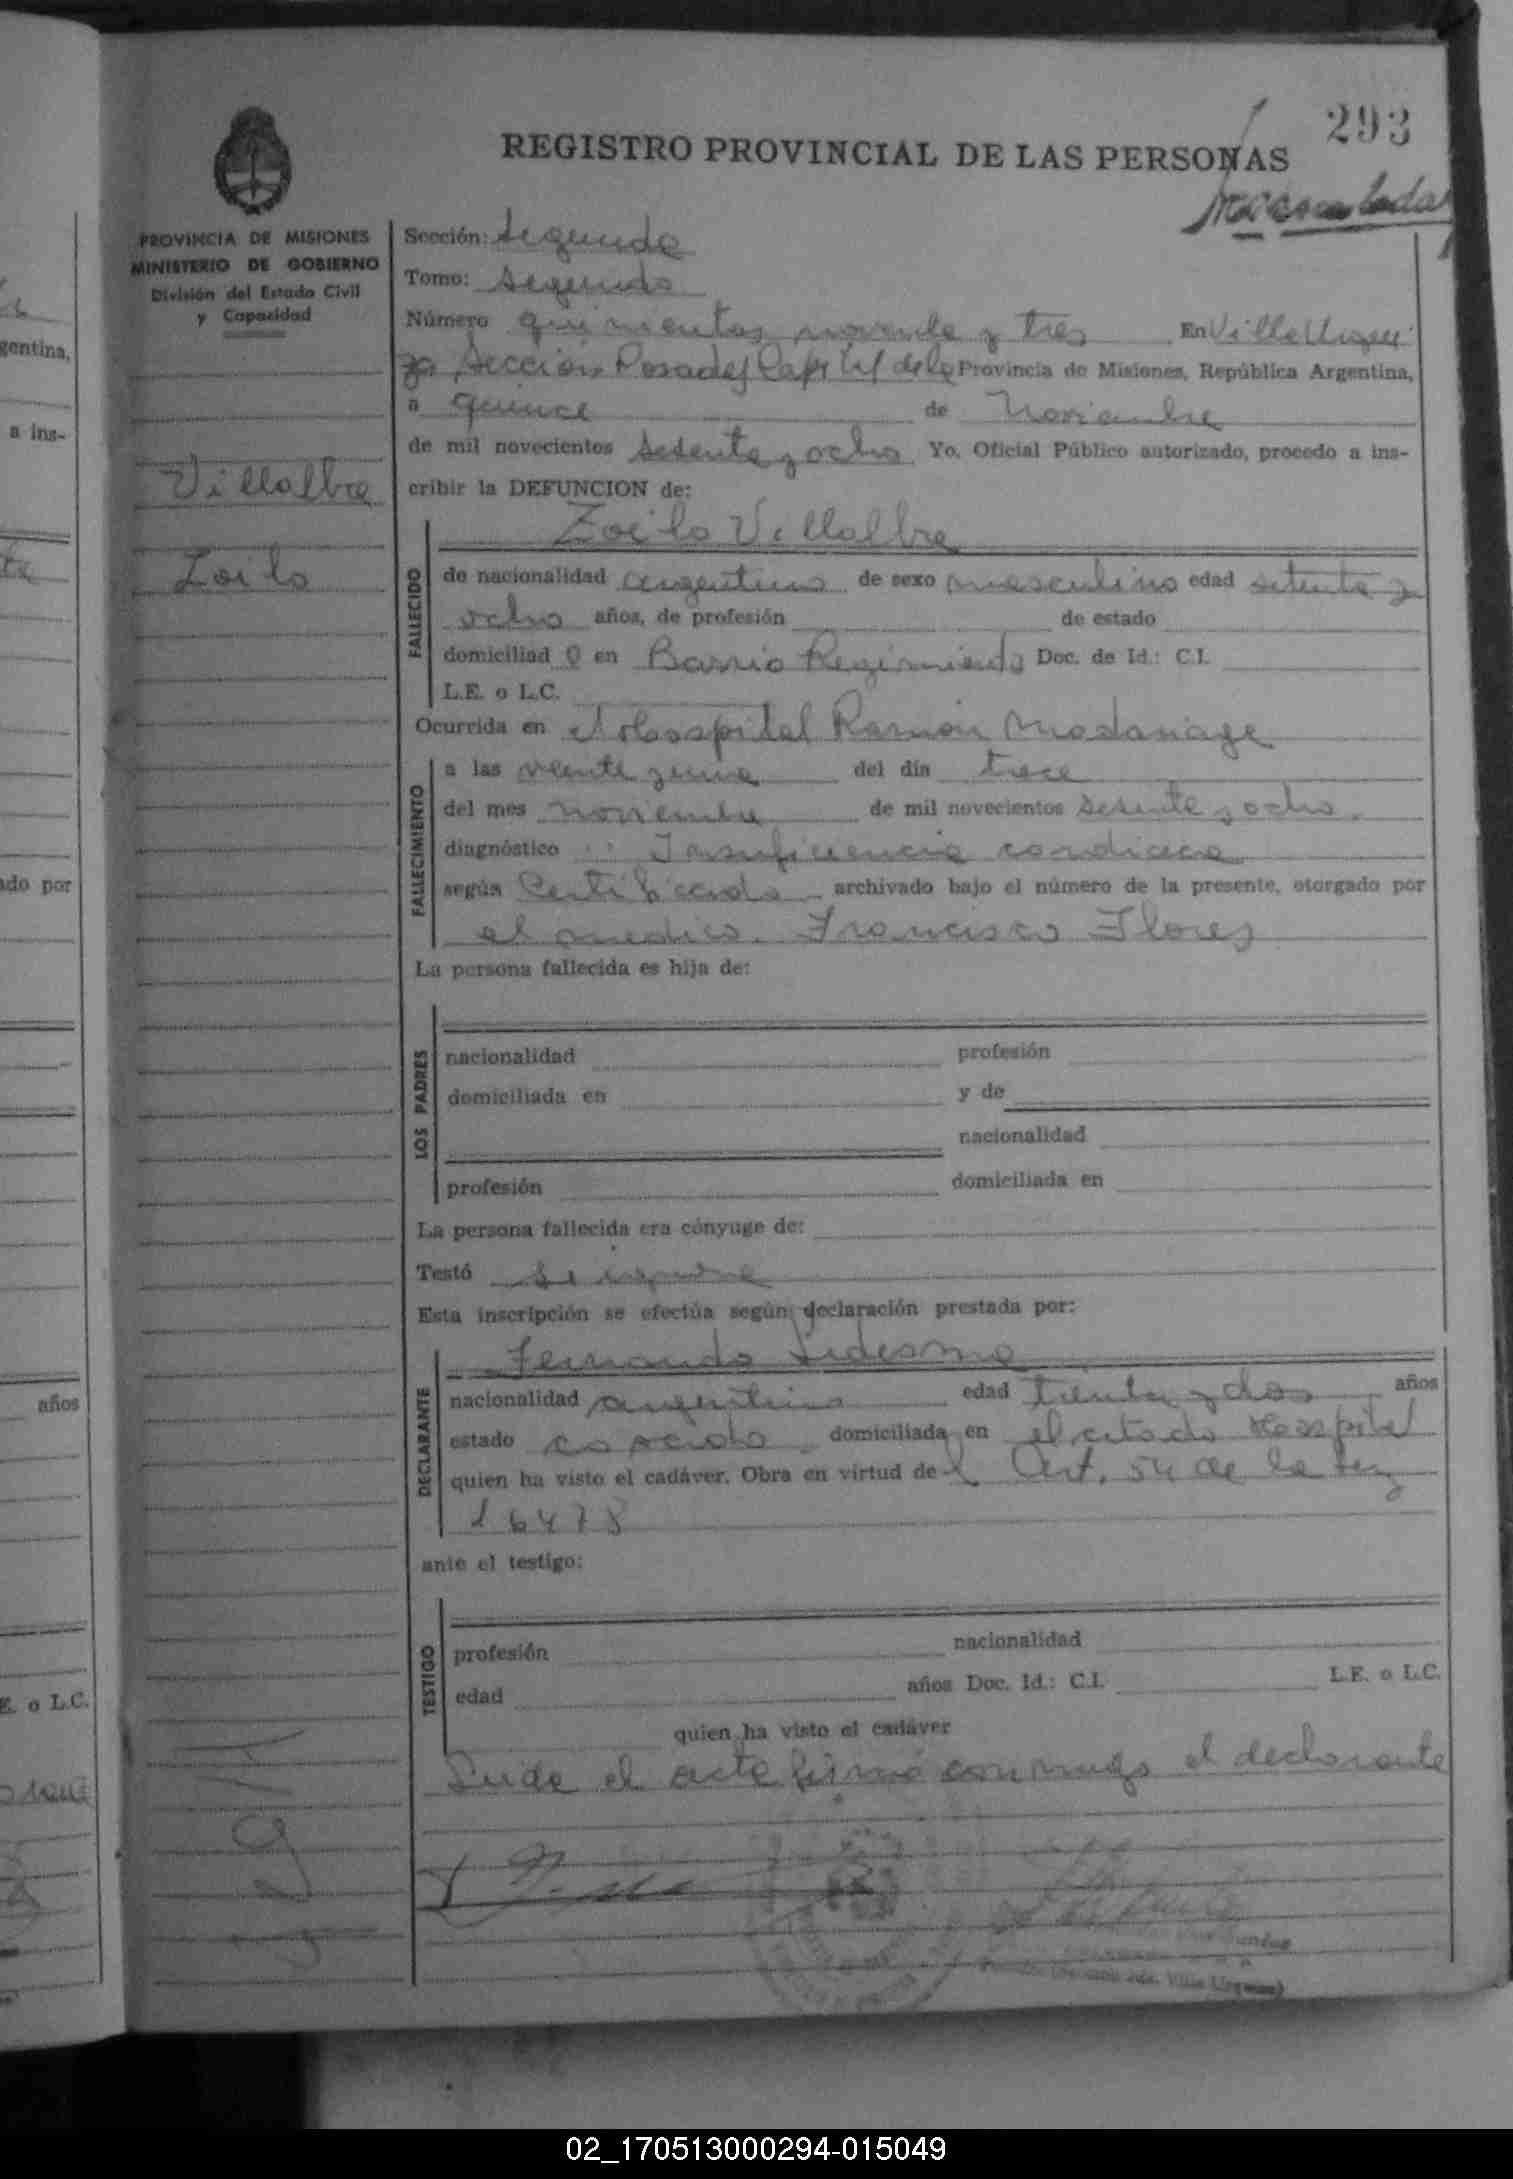 293
REGISTRO PROVINCIAL DE LAS PERSONAS
PROVINCIA DE MISIONES
MINISTERIO DE GOBIERNO
División del Estado Civil
y Capacidad
Villalba
Zoilo
Sección: Segunda
Tomo: Segundo
Número quinientos noventa y tres En Villa Urqui
za Sección Posadas Capital de la Provincia de Misiones, República Argentina,
a quince de Noviembre
de mil novecientos setenta y ocho Yo, Oficial Público autorizado, procedo a ins-
cribir la DEFUNCION de:
Zoilo Villalba
FALLECIDO
de nacionalidad argentino de sexo masculino edad setenta y
ocho años, de profesión de estado
domiciliad o en Barrio Regimiento Doc. de Id.: C.I.
L.E. o L.C.
Ocurrida en Hospital Ramón Madariaga
FALLECIMIENTO
a las veinte y una del día trece
del mes noviembre de mil novecientos setenta y ocho.
diagnóstico Insuficiencia cardiaca
según Certificado archivado bajo el número de la presente, otorgado por
el medico. Francisco Flores
La persona fallecida es hija de:
LOS PADRES
nacionalidad profesión
domiciliada en y de
nacionalidad
profesión domiciliada en
La persona fallecida era cónyuge de:
Testó se ignora
Esta inscripción se efectúa según declaración prestada por:
DECLARANTE
Fernando Ledesma
nacionalidad argentino edad treinta y dos años
estado casado domiciliada en el citado Hospital
quien ha visto el cadáver. Obra en virtud de l Art. 54 de la Ley
16478
ante el testigo:
TESTIGO
profesión nacionalidad
edad años Doc. Id.: C.I. L.E. o L.C.
quien ha visto el cadáver
Leida el acta firmó conmigo el declarante
02_170513000294-015049